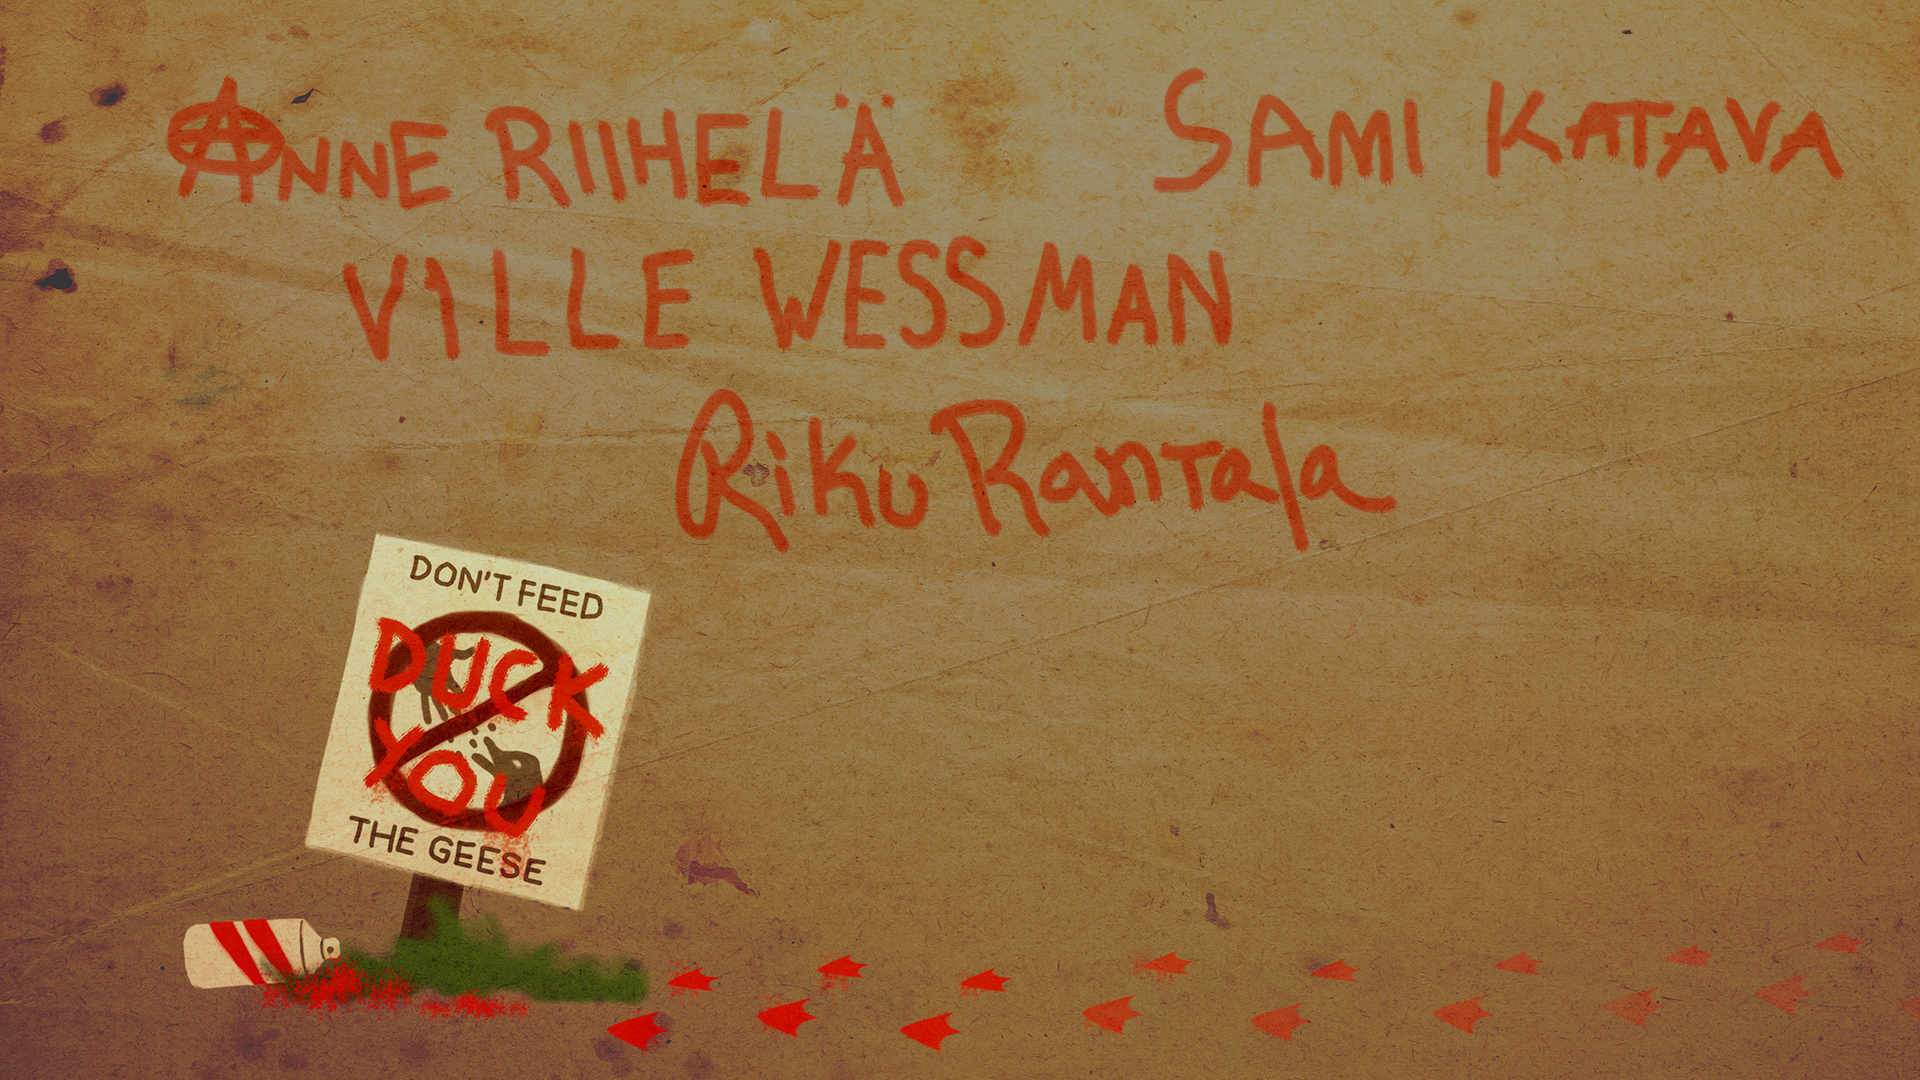 Anne Riihelä
Sami Katava
Ville Wessman
Riku Rantala
DON'T FEED
DUCK
YOU
THE GEESE